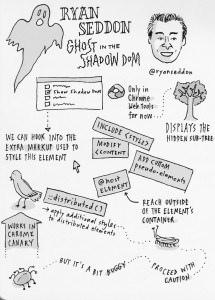 RYAN
SEDDON
GHOST IN THE
SHADOW DOM
@ryanseddon
Show Shadow DOM
Only in
Chrome
Web Tools
for now
DISPLAYS THE
HIDDEN SUB-TREE
WE CAN HOOK INTO THE
EXTRA MARKUP USED TO
STYLE THIS ELEMENT
INCLUDE <STYLE>
MODIFY
<CONTENT>
ADD CUSTOM
pseudo-elements
@host
ELEMENT
REACH OUTSIDE
OF THE ELEMENT'S
CONTAINER
::distributed()
apply additional styles
to distributed elements
WORKS IN
CHROME
CANARY
BUT IT'S A BIT BUGGY
PROCEED WITH
CAUTION